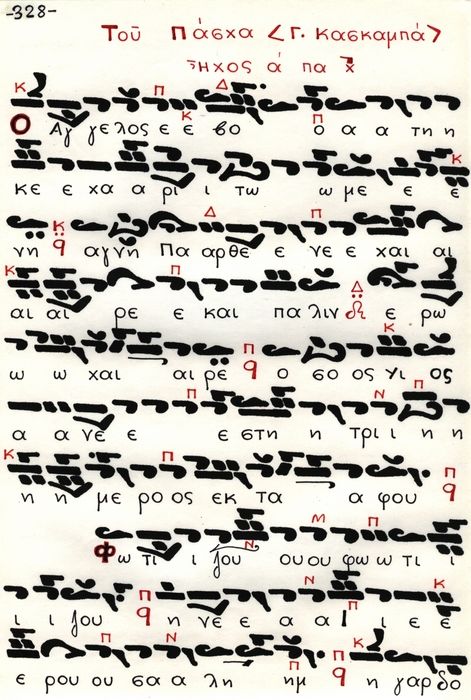 -328-
Τοῦ Πάσχα <Γ. Κασκαμπά>
Ἦχος ά πα χ
Ο Αγ γελος ε ε βο ο α α τη τη
κε ε χα α ρι ι τω ω με ε ε
νη αγνη Πα αρθε ε νε ε χαι αι
αι αι ρε ε και πα λιν ε ρω
ω ω χαι αι ρε ο σο ος υι ος
α α νε ε ε στη η τρι ι η η
η η με ρο ος εκ τα α φου
Φω τι ι ζου ου ου φω ω τι ι
ι ι ζου η νε ε α α Ι ε ε
ε ρου ου σα α λη ημ η γαρ δο